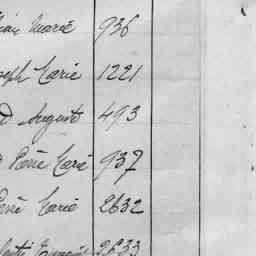 Marie 936
Joseph Marie 1221
Auguste 493
Pierre Marie 937
René Marie 2632
2633